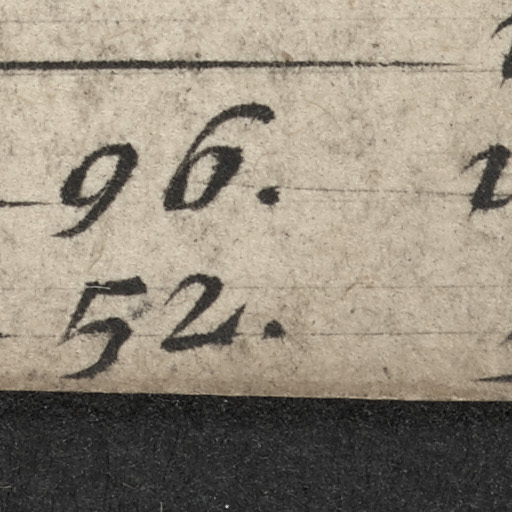 96.
52.